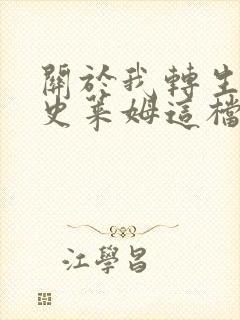 關於我轉生
史萊姆這檔
江學昌